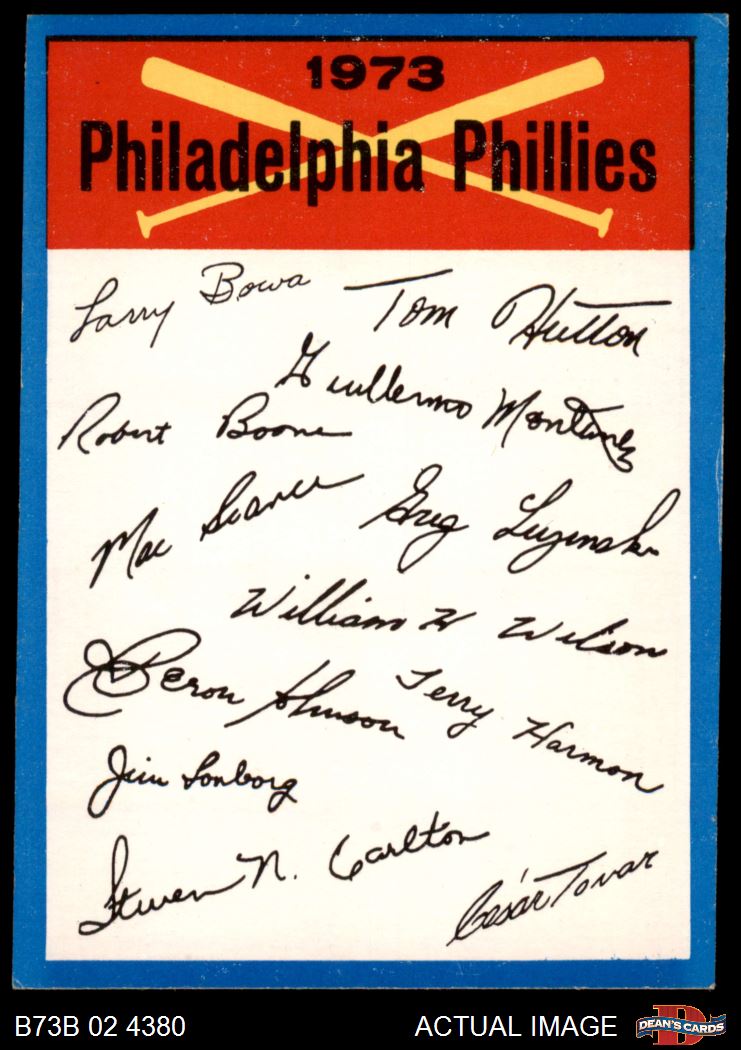 1973
Philadelphia Phillies
Larry Bowa
Tom Hutton
Guillermo Montanez
Robert Boone
Mac Scarce
Greg Luzinski
William H Wilson
Deron Johnson
Terry Harmon
Jim Lonborg
Steven N. Carlton
César Tovar
B73B 02 4380
ACTUAL IMAGE
DEAN'S CARDS